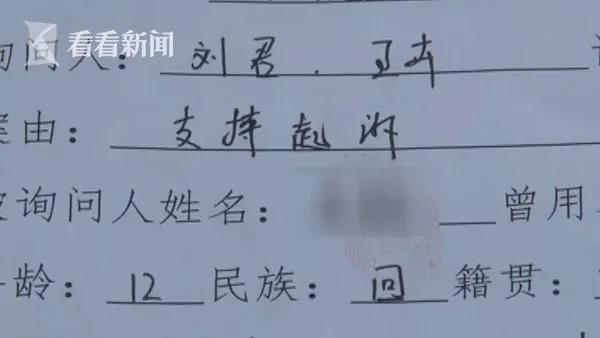 看看新闻
询问人：刘君、丁卉
案由：支持起诉
被询问人姓名： 曾用
龄：12 民族：回 籍贯：